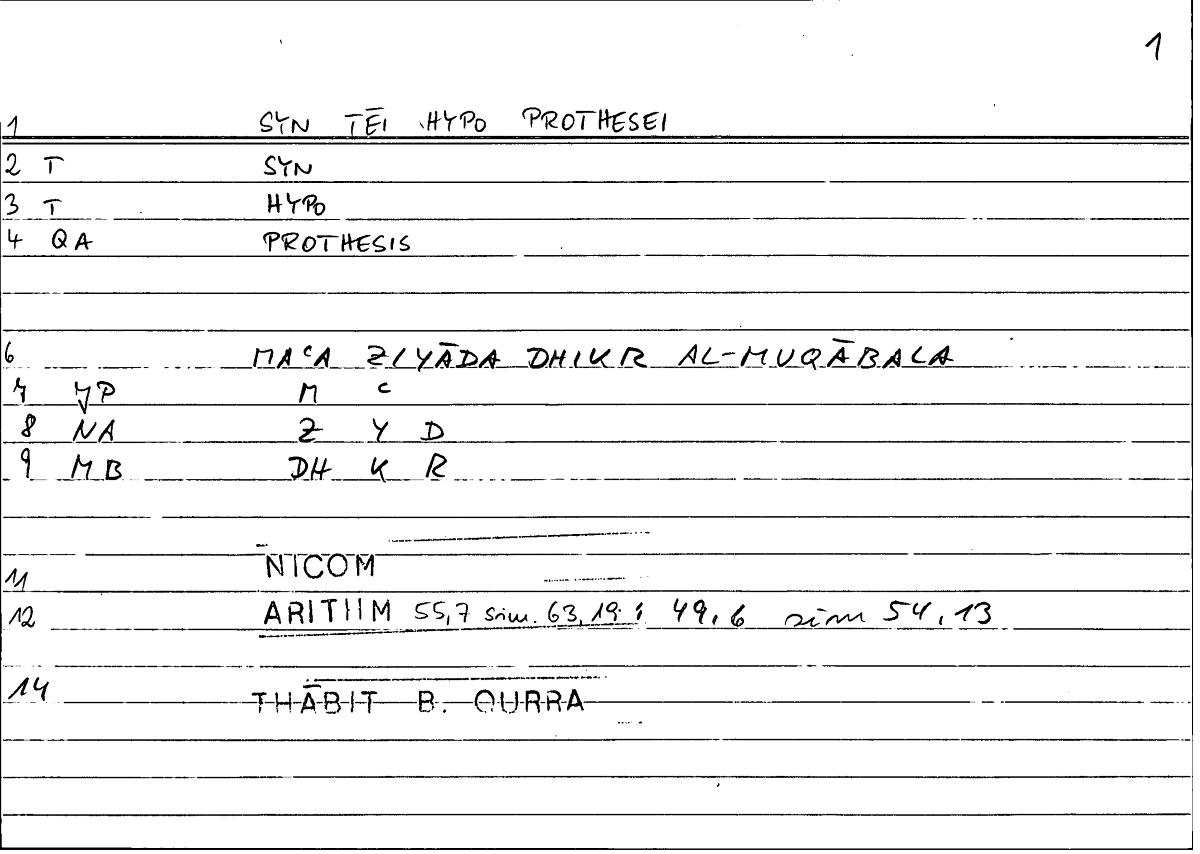 1
1 SYN TĒI HYPO PROTHESEI
2 T SYN
3 T HYPO
4 QA PROTHESIS
6 MAᶜA ZIYĀDA DHIKR AL-MUQĀBALA
7 M ᶜ
8 NA Z Y D
9 MB DH K R
11 NICOM
12 ARITHM 55,7 sim. 63,19 : 49,6 sim 54,13
14 THĀBIT B. QURRA